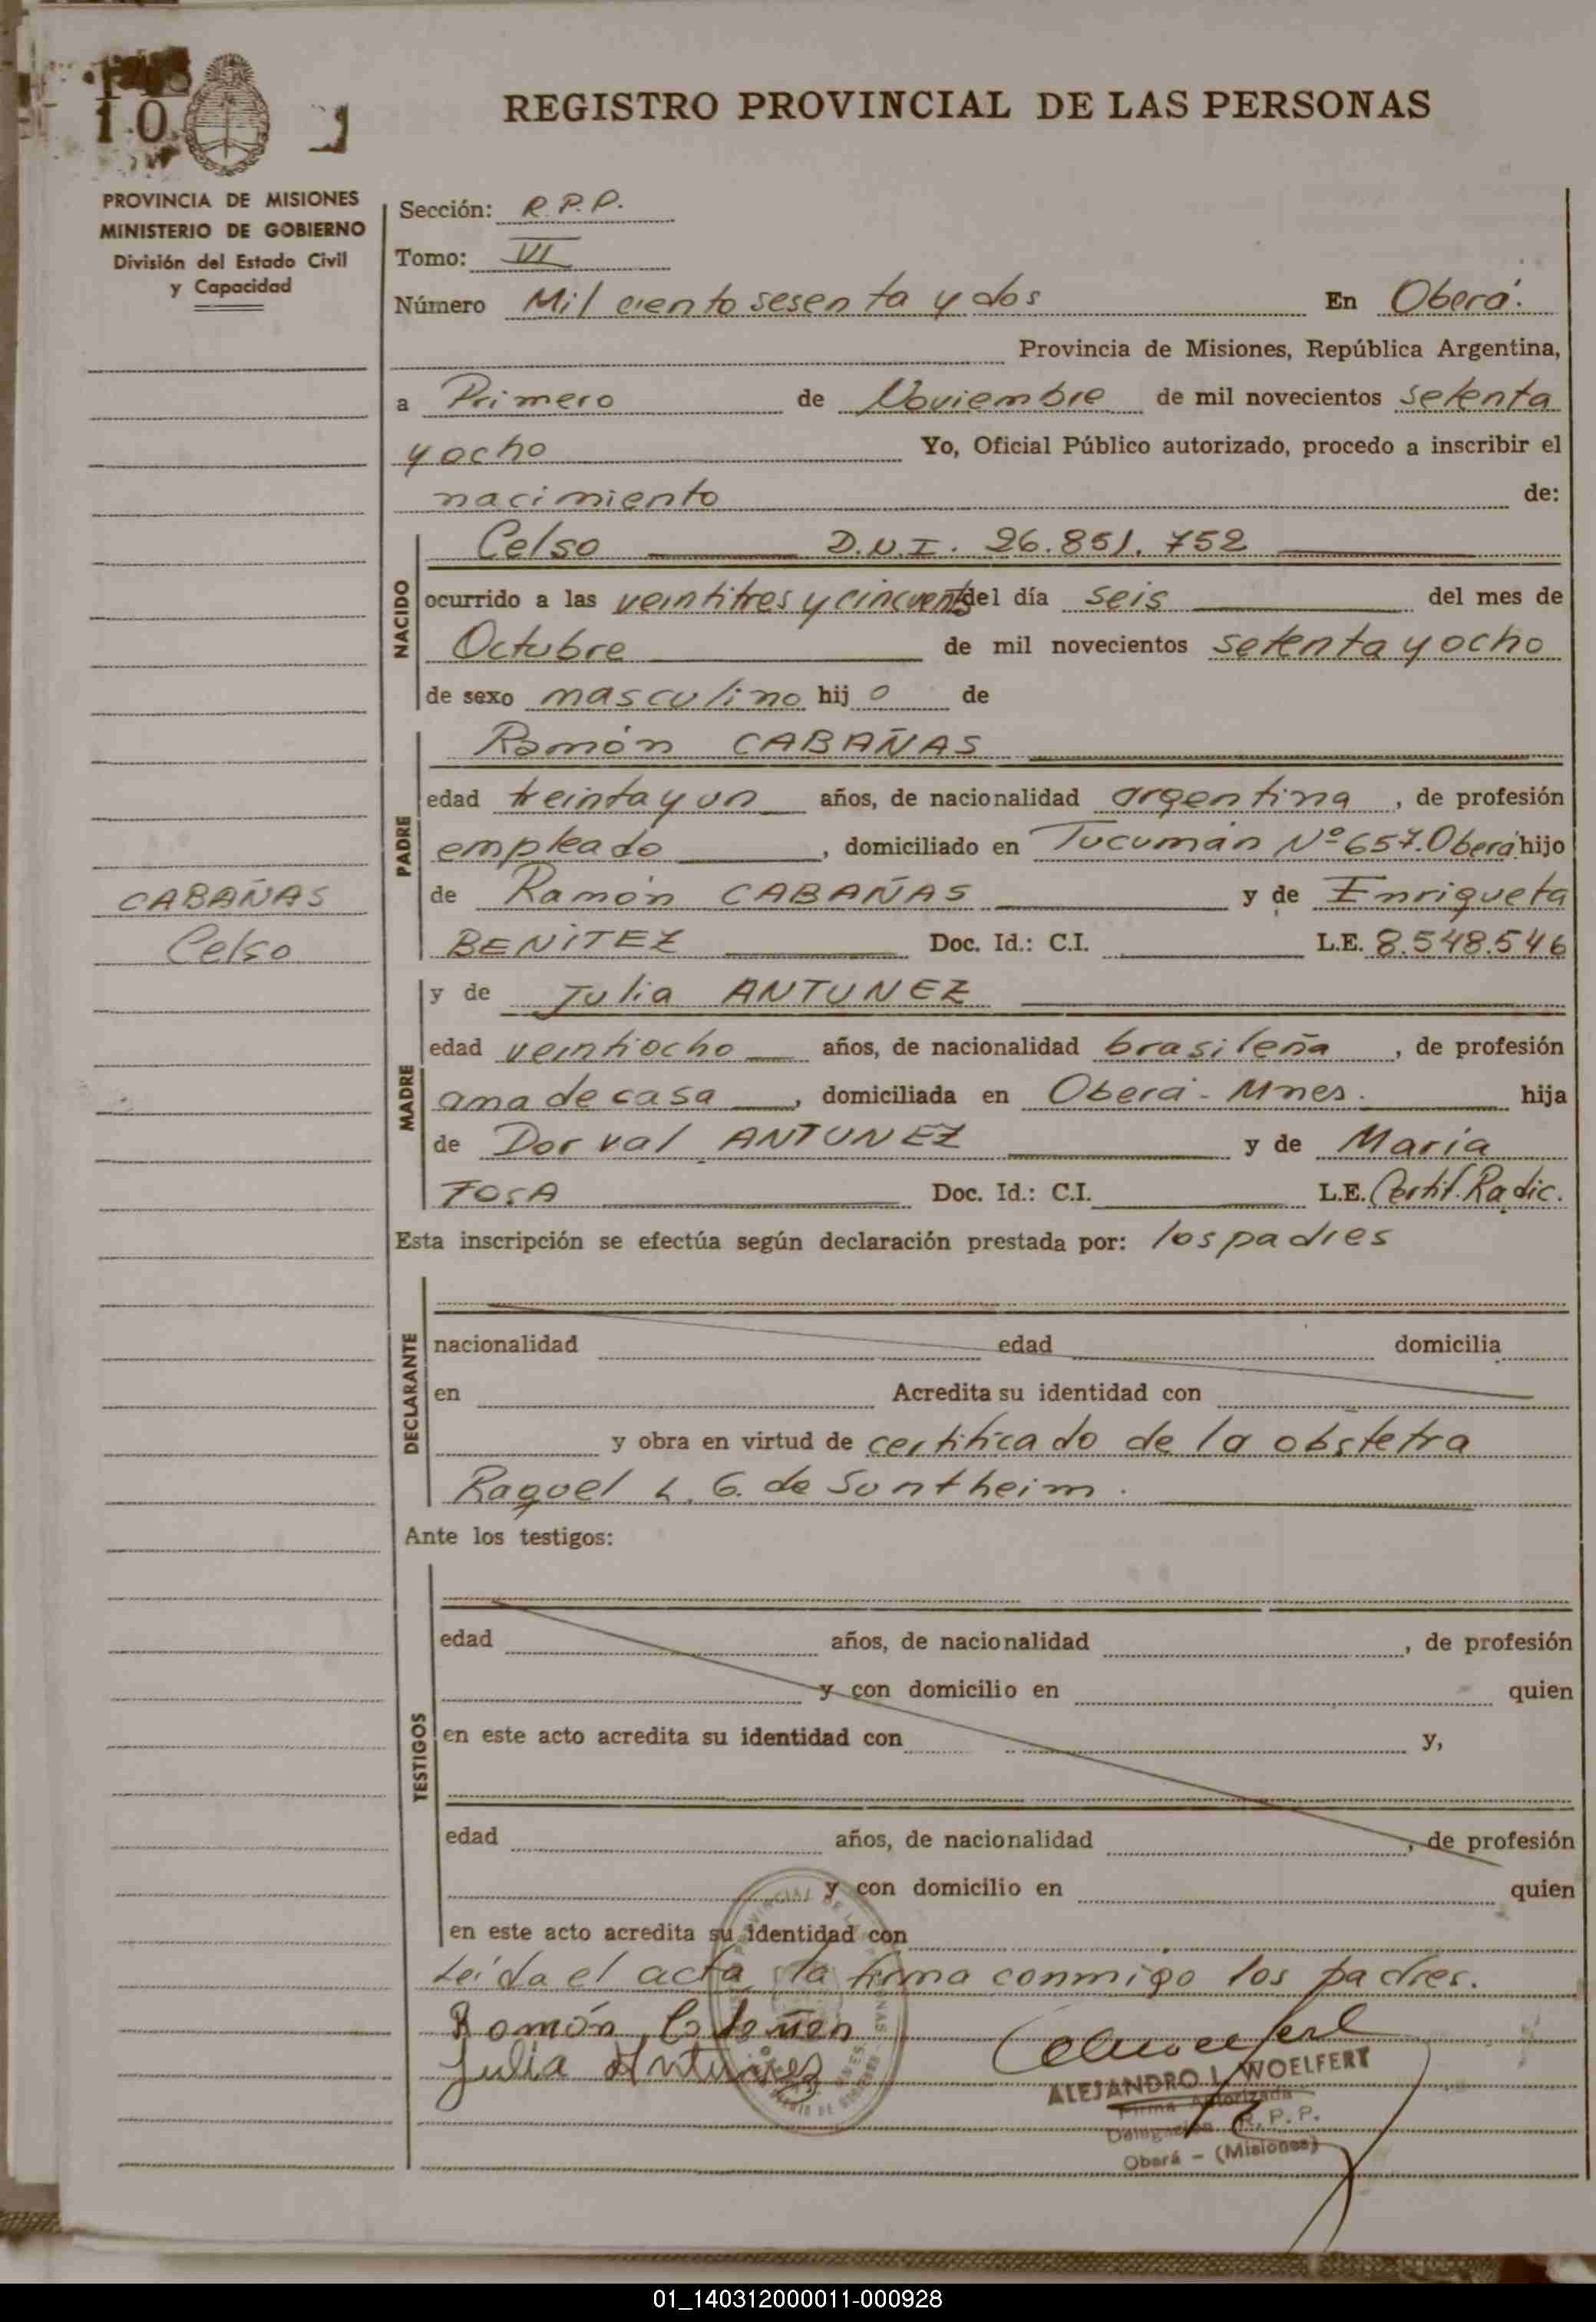 REGISTRO PROVINCIAL DE LAS PERSONAS
PROVINCIA DE MISIONES
MINISTERIO DE GOBIERNO
División del Estado Civil
y Capacidad
CABAÑAS
Celso
Sección: R.P.P.
Tomo: VI
Número Mil ciento sesenta y dos En Oberá.
Provincia de Misiones, República Argentina,
a Primero de Noviembre de mil novecientos setenta
y ocho Yo, Oficial Público autorizado, procedo a inscribir el
nacimiento de:
NACIDO
Celso D.N.I. 26.851.752
ocurrido a las veintitres y cincuenta del día seis del mes de
Octubre de mil novecientos setenta y ocho
de sexo masculino hijo de
PADRE
Ramón CABAÑAS
edad treinta y un años, de nacionalidad argentina, de profesión
empleado, domiciliado en Tucumán Nº 657. Oberá hijo
de Ramón CABAÑAS y de Enriqueta
BENITEZ Doc. Id.: C.I. L.E. 8.548.546
MADRE
y de Julia ANTUNEZ
edad veintiocho años, de nacionalidad brasileña, de profesión
ama de casa, domiciliada en Oberá - Mnes. hija
de Dorval ANTUNEZ y de Maria
Doc. Id.: C.I. L.E. Certif. Radic.
Esta inscripción se efectúa según declaración prestada por: los padres
DECLARANTE
nacionalidad edad domicilia
en Acredita su identidad con
y obra en virtud de certificado de la obstetra
Raquel L. G. de Sontheim.
Ante los testigos:
TESTIGOS
edad años, de nacionalidad , de profesión
y con domicilio en quien
en este acto acredita su identidad con y,
edad años, de nacionalidad , de profesión
y con domicilio en quien
en este acto acredita su identidad con
Leída el acta la firma conmigo los padres.
Ramón Cabañas
Julia Antunez
ALEJANDRO L. WOELFERT
Firma Autorizada
Delegación R.P.P.
Oberá - (Misiones)
01_140312000011-000928